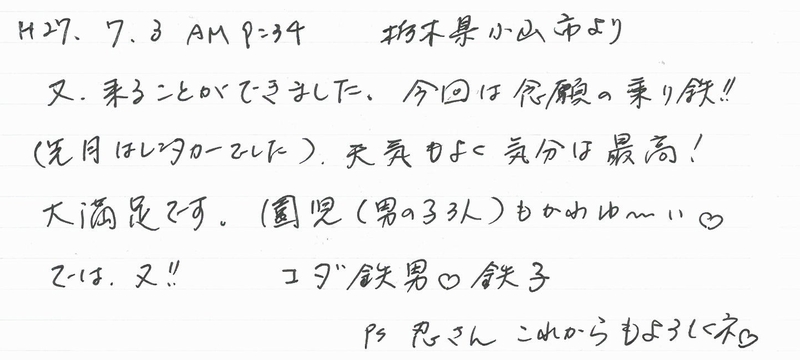 H27. 7. 3 AM 9:34 栃木県小山市より
又、来ることができました、今回は念願の乗り鉄!!
(先月はレンタカーでした)、天気もよく気分は最高!
大満足です。(園児(男の子3人)もかわゆ〜い♡
では、又!! コダ鉄男♡鉄子
PS 忍さん これからもよろしくネ♡